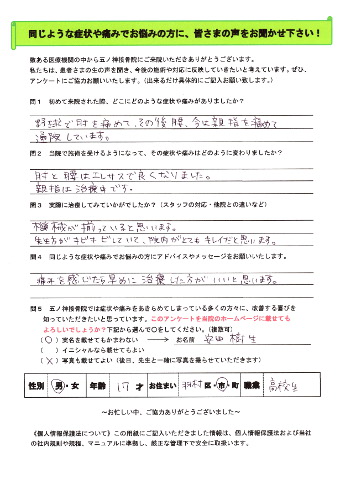 同じような症状や痛みでお悩みの方に、皆さまの声をお聞かせ下さい！
数ある医療機関の中から五ノ神接骨院にご来院いただきありがとうございます。
私たちは、患者さまの生の声を聞き、今後の施術や対応に反映していきたいと考えています。ぜひ、
アンケートにご協力お願いします。（出来るだけ具体的にご記入お願い致します。）
問１　初めて来院された際、どこにどのような症状や痛みがありましたか？
野球で肘を痛めて、その後腰、今は親指を痛めて
通院しています。
問２　当院で施術を受けるようになって、その症状や痛みはどのように変わりましたか？
肘と腰はエレサスで良くなりました。
親指は治療中です。
問３　実際に治療してみていかがでしたか？（スタッフの対応・他院との違いなど）
機械が揃っていると思います。
先生方がキビキビしていて、院内がとてもキレイだと思います。
問４　同じような症状や痛みでお悩みの方にアドバイスやメッセージをお願いいたします。
痛みを感じたら早めに治療した方がいいと思います。
問５　五ノ神接骨院では症状や痛みをあきらめてしまっている多くの方々に、改善する喜びを
知っていただきたいと思っています。このアンケートを当院のホームページに載せても
よろしいでしょうか？下記から選んで○をしてください。（複数可）
（○）実名を載せてもかまわない　→　お名前　安田樹生
（　）イニシャルなら載せてもよい
（×）写真も載せてよい（後日、先生と一緒に写真を撮らせていただきます）
性別　男・女　年齢　17才　お住まい　羽村　区・市・町　職業　高校生
～お忙しい中、ご協力ありがとうございました～
《個人情報保護法について》この用紙にご記入いただきました情報は、個人情報保護法および当社
の社内規則や規程、マニュアルに準拠し、厳正な管理下で安全に取扱います。